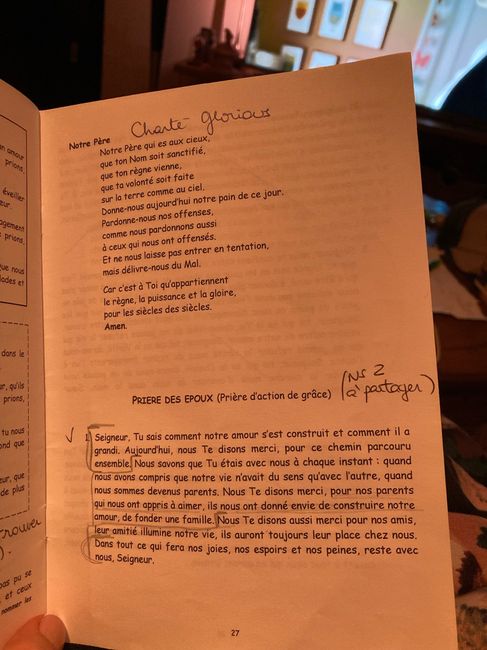 Notre Père Chanté glorious
Notre Père qui es aux cieux,
que ton Nom soit sanctifié,
que ton règne vienne,
que ta volonté soit faite
sur la terre comme au ciel.
Donne-nous aujourd'hui notre pain de ce jour.
Pardonne-nous nos offenses,
comme nous pardonnons aussi
à ceux qui nous ont offensés.
Et ne nous laisse pas entrer en tentation,
mais délivre-nous du Mal.
Car c'est à Toi qu'appartiennent
le règne, la puissance et la gloire,
pour les siècles des siècles.
Amen.
PRIERE DES EPOUX (Prière d'action de grâce) (Ns 2
à partager)
1 Seigneur, Tu sais comment notre amour s'est construit et comment il a
grandi. Aujourd'hui, nous Te disons merci, pour ce chemin parcouru
ensemble. Nous savons que Tu étais avec nous à chaque instant : quand
nous avons compris que notre vie n'avait du sens qu'avec l'autre, quand
nous sommes devenus parents. Nous Te disons merci, pour nos parents
qui nous ont appris à aimer, ils nous ont donné envie de construire notre
amour, de fonder une famille. Nous Te disons aussi merci pour nos amis,
leur amitié illumine notre vie, ils auront toujours leur place chez nous.
Dans tout ce qui fera nos joies, nos espoirs et nos peines, reste avec
nous, Seigneur.
27
n amour
prions,
éveiller
eur.
agement
prions,
que nous
lades et
dans le
ur, qu'ils
prions,
tu nous
ond que
eur, que
de plus
trouver
pas pu se
et ceux
nommer les